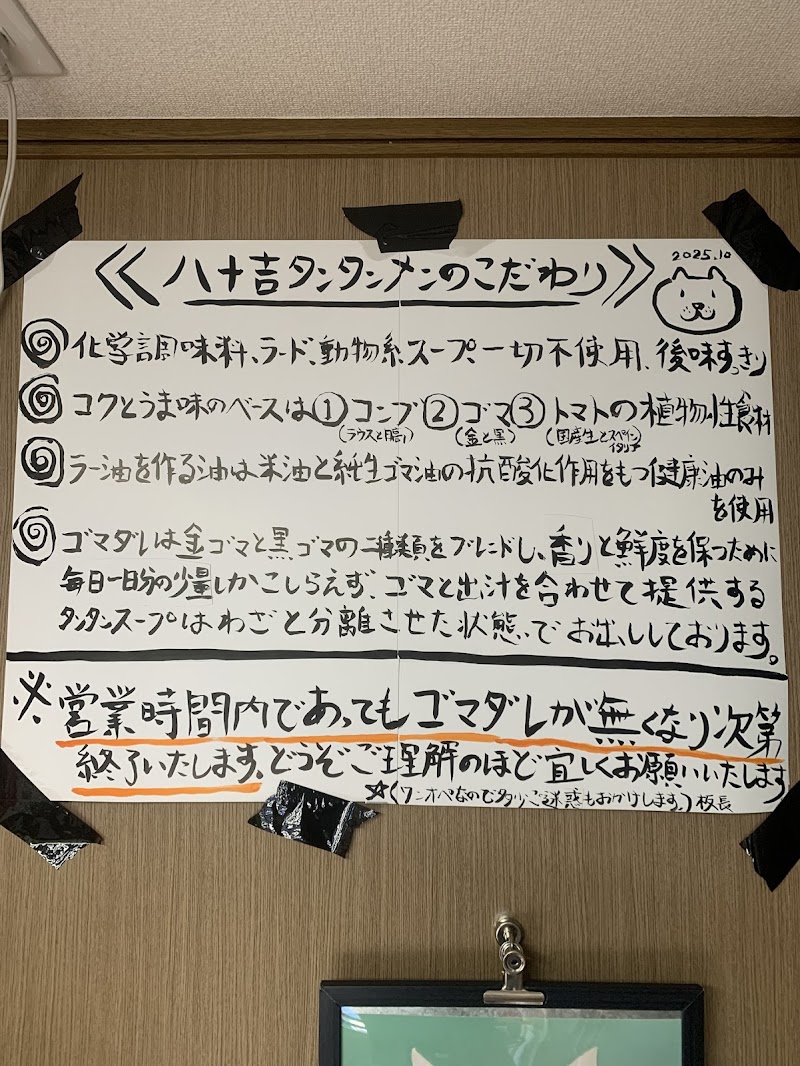 2025.10
≪八十吉タンタンメンのこだわり≫
◎化学調味料、ラード、動物系スープ、一切不使用、後味すっきり
◎コクとうま味のベースは①コンブ②ゴマ③トマトの植物性食材
(ラウスと隠し) (金と黒) (国産生とスペインイタリア)
◎ラー油を作る油は米油と純生ゴマ油の抗酸化作用をもつ健康油のみ
を使用
◎ゴマダレは金ゴマと黒ゴマの二種類をブレンドし、香りと鮮度を保つために
毎日一日分の少量しかこしらえず、ゴマと出汁を合わせて提供する
タンタンスープはわざと分離させた状態でお出ししております。
※営業時間内であってもゴマダレが無くなり次第
終了いたします。どうぞご理解のほど宜しくお願いいたします
☆(ワンオペなので多少ご迷惑もおかけします。) 板長